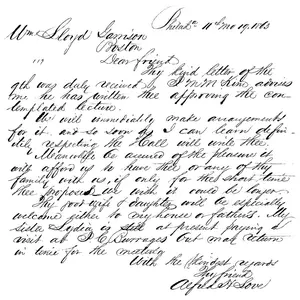 Philada 11th Mo 19, 1863
Wm Lloyd Garrison
Boston
Dear friend
Thy kind letter of the
9th was duly received & J M McKim advises
me he has written thee approving the con
templated lecture.
We will immediately make arrangements
for it, and so soon as I can learn defin-
itely respecting the Hall will write thee.
Meanwhile be assured of the pleasure it
will afford us to have thee or any of thy
family with us, if only for the short time
thee proposes. We wish it could be longer.
Thy good wife & daughter will be especially
welcome either to my house or fathers. My
Sister Lydia is at present paying a
visit at J E Burrages but may return
in time for the meeting
With the kindest regards
Thy friend
Alfred H Love